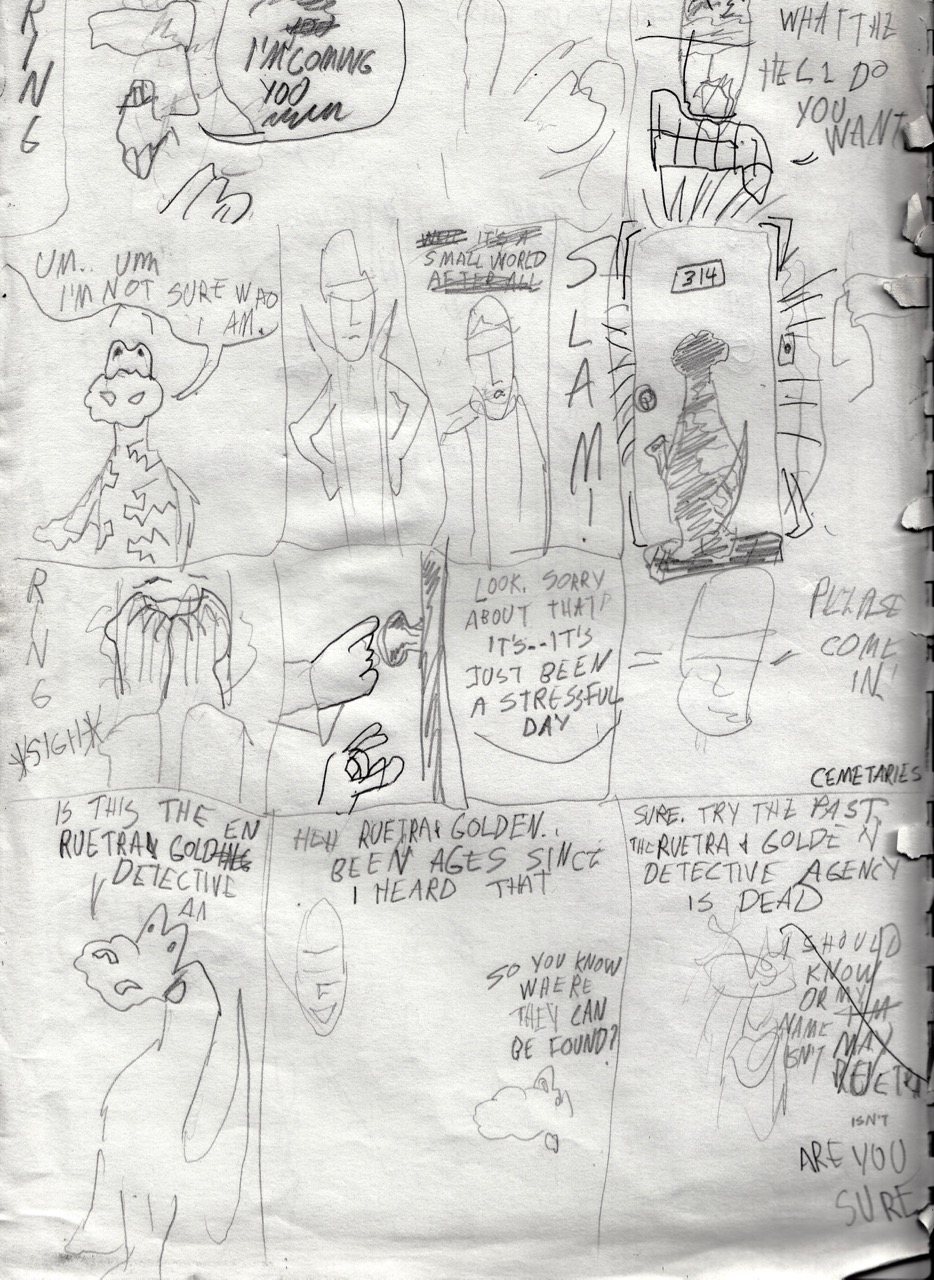 RING
I'M COMING
YOU
WHAT THE
HELL DO
YOU
WANT
UM.. UMM
I'M NOT SURE WAO
I AM.
WELL IT'S A
SMALL WORLD
AFTER ALL
SLAM!
314
RING
*SIGH*
LOOK, SORRY
ABOUT THAT!
IT'S--IT'S
JUST BEEN
A STRESSFUL
DAY
PLEASE
COME
IN!
CEMETARIES
IS THIS THE
RUETRA & GOLDEN
DETECTIVE
AA
HEH RUETRA & GOLDEN..
BEEN AGES SINCE
I HEARD THAT
SO YOU KNOW
WHERE
THEY CAN
BE FOUND?
SURE. TRY THE PAST.
THE RUETRA & GOLDEN
DETECTIVE AGENCY
IS DEAD
I SHOULD
KNOW
OR MY
NAME
ISN'T MAY
RUETRA
ISN'T
ARE YOU
SURE